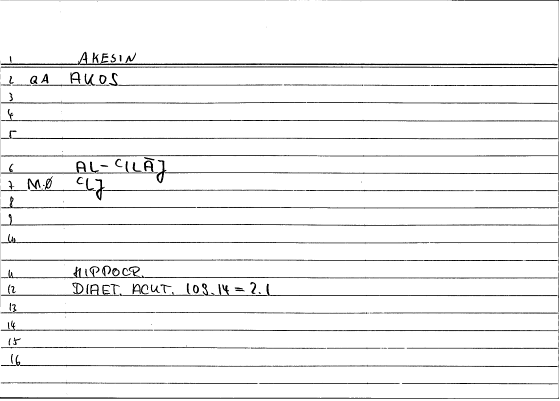 1 AKESIN
2 QA AKOS
3
4
5
6 AL-ʿILĀJ
7 M.Ø ʿLJ
8
9
10
11 HIPPOCR.
12 DIAET. ACUT. 109.14 = 2.1
13
14
15
16